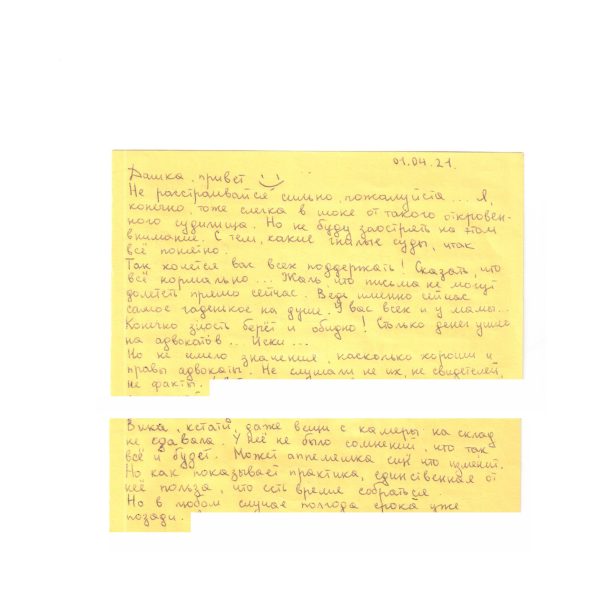 01.04.21.
Дашка, привет
Не расстраивайся сильно, пожалуйста... Я,
конечно, тоже слегка в шоке от такого откровен-
ного судилища. Но не буду заострять на этом
внимание. С тем, какие гнилые суды, итак
всё понятно.
Так хочется вас всех поддержать! Сказать, что
всё нормально... Жаль, что письма не могут
долететь прямо сейчас. Ведь именно сейчас
самое гаденькое на душе. У вас всех и у мамы...
Конечно злость берёт и обидно! Столько денег ушло
на адвокатов... Иски...
Но не имело значения, насколько хороши и
правы адвокаты. Не слушали не их, не свидетелей,
не факты.
Вика, кстати, даже вещи с камеры на склад
не сдавала. У неё не было сомнений, что так
всё и будет. Может аппеляшка ещё что изменит.
Но как показывает практика, единственная от
неё польза, что есть время собраться.
Но в любом случае полгода срока уже
позади.